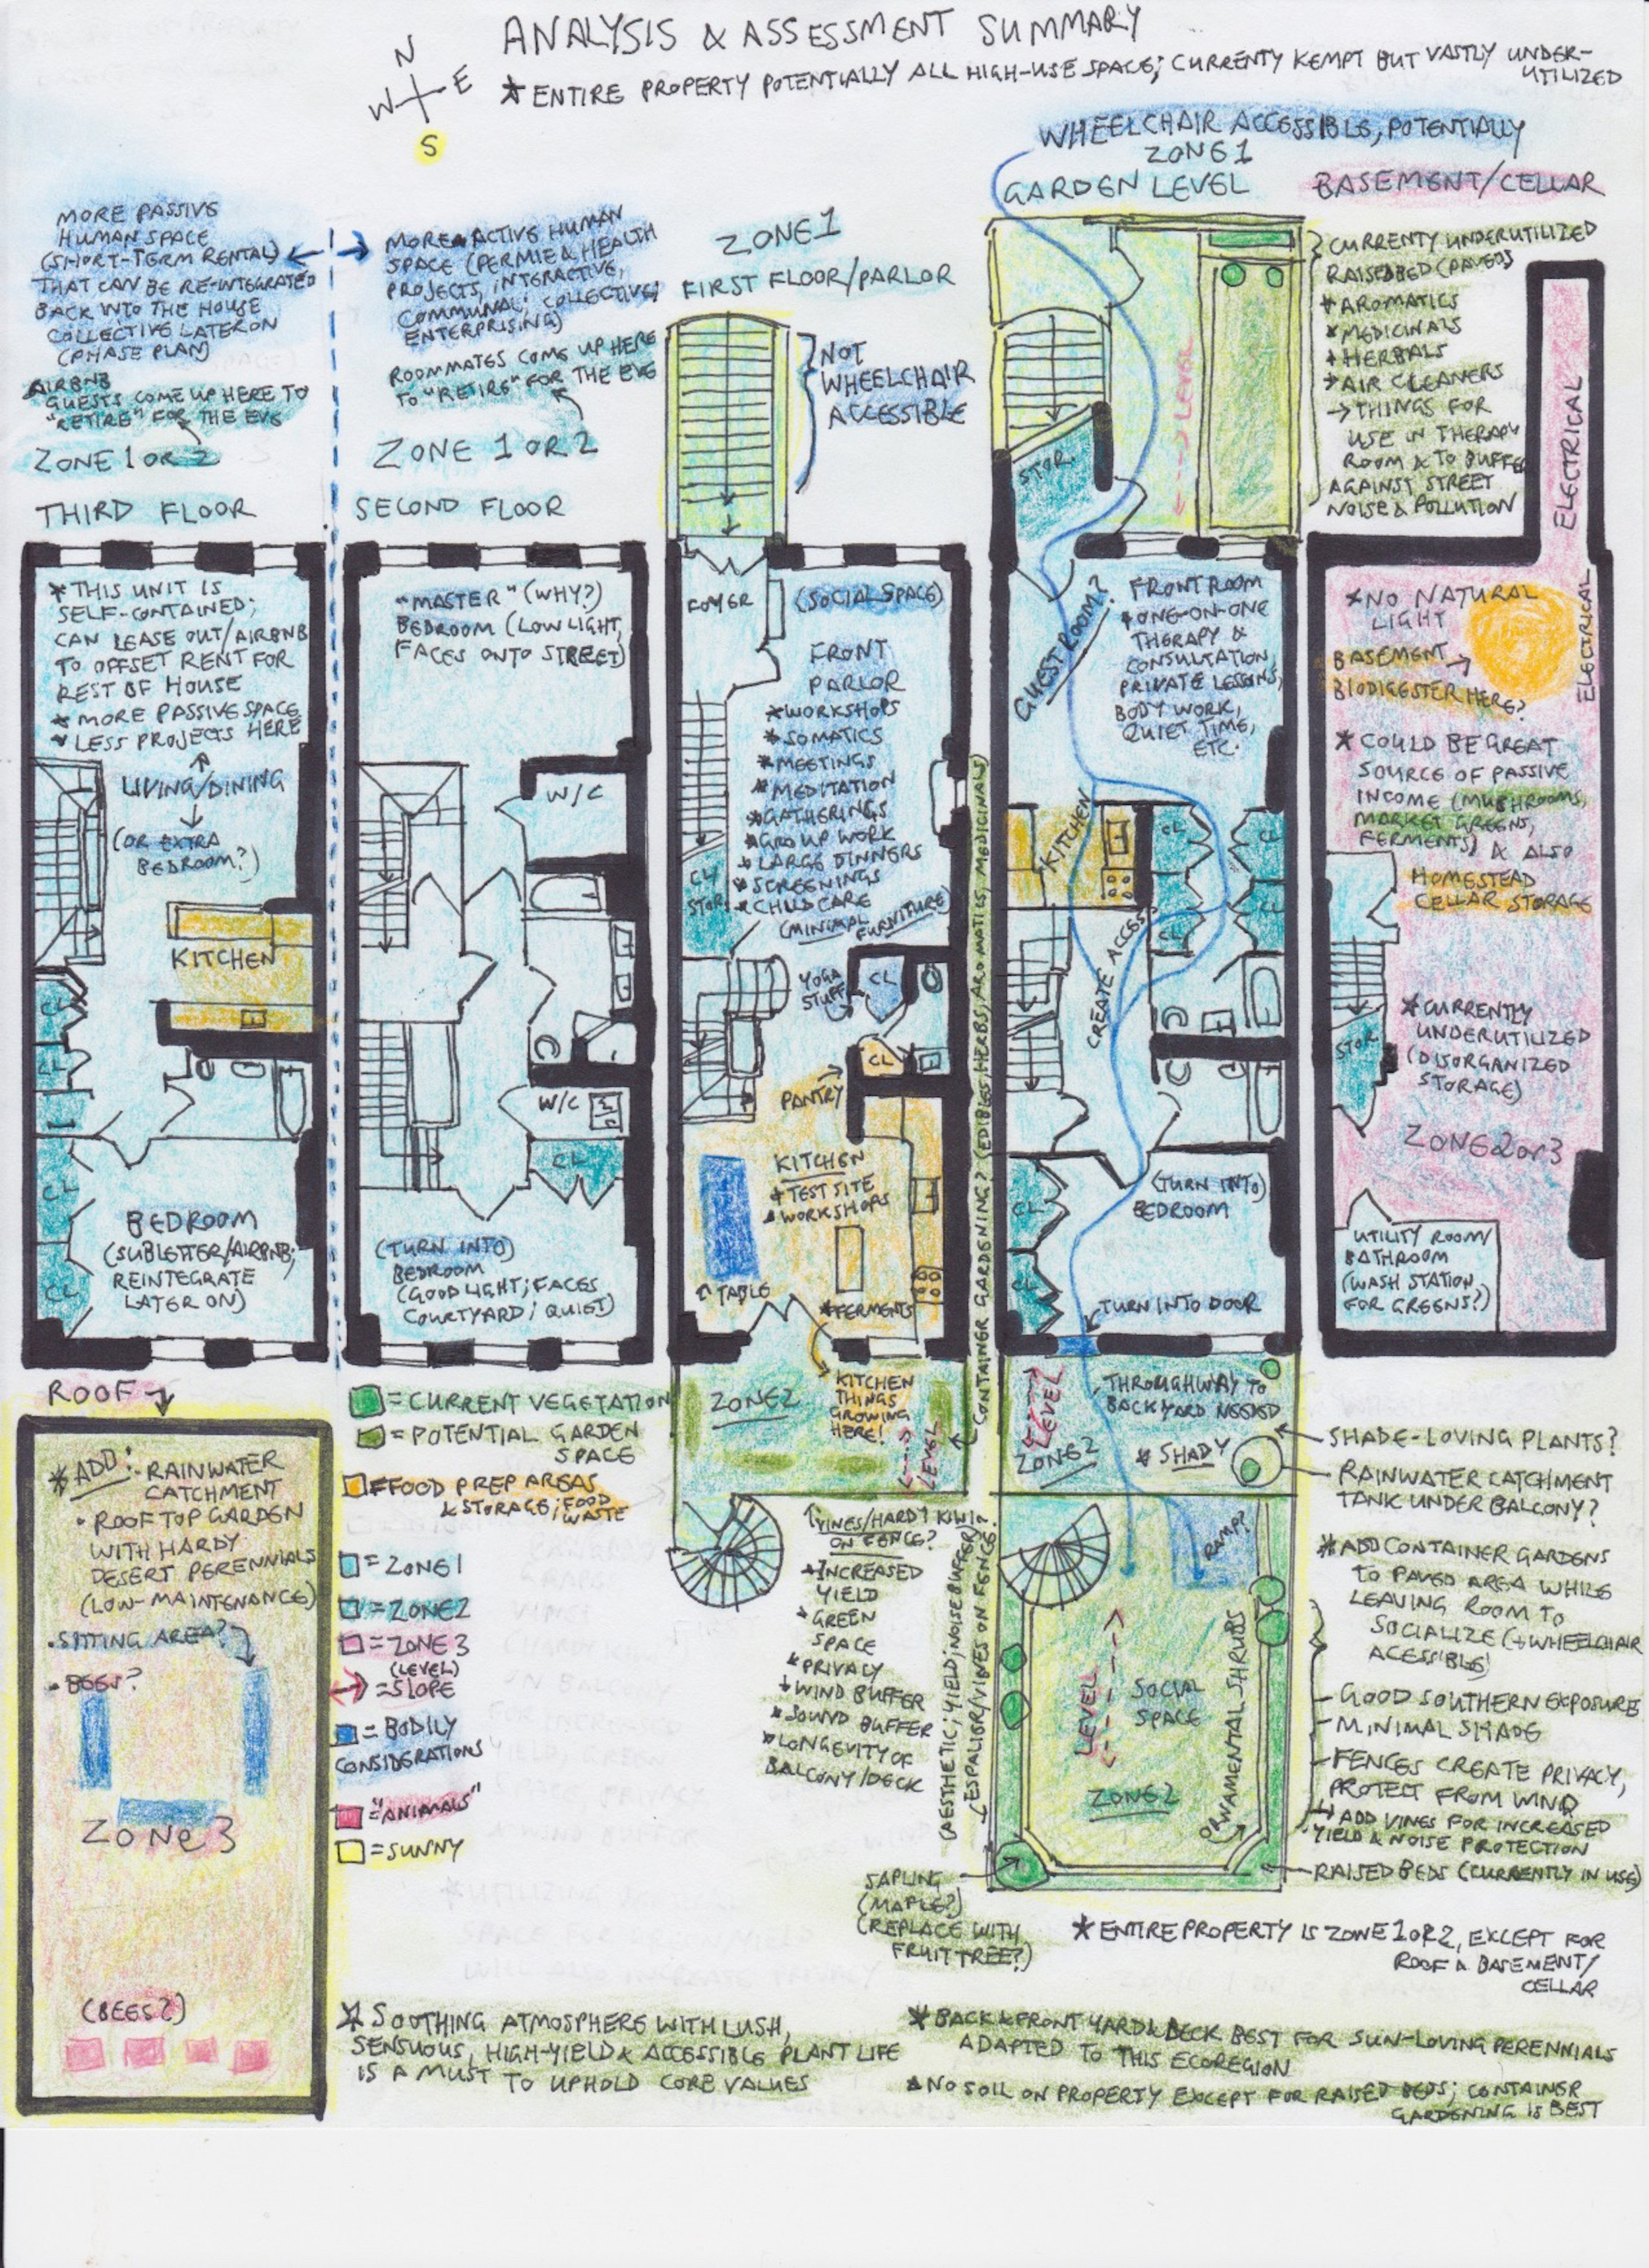 ANALYSIS & ASSESSMENT SUMMARY
* ENTIRE PROPERTY POTENTIALLY ALL HIGH-USE SPACE; CURRENTY KEMPT BUT VASTLY UNDER-
UTILIZED
N
W
E
S
WHEELCHAIR ACCESSIBLE, POTENTIALLY
ZONE 1
GARDEN LEVEL
BASEMENT/CELLAR
MORE PASSIVE
HUMAN SPACE
(SHORT-TERM RENTAL)
THAT CAN BE RE-INTEGRATED
BACK INTO THE HOUSE
COLLECTIVE LATER ON
(PHASE PLAN)
AIRBNB
GUESTS COME UP HERE TO
"RETIRE" FOR THE EVE
ZONE 1 OR 2
THIRD FLOOR
MORE ACTIVE HUMAN
SPACE (PERMIE & HEALTH
PROJECTS, INTERACTIVE,
COMMUNAL; COLLECTIVE;
ENTERPRISING)
ROOMMATES COME UP HERE
TO "RETIRE" FOR THE EVE
ZONE 1 OR 2
SECOND FLOOR
ZONE 1
FIRST FLOOR/PARLOR
NOT
WHEELCHAIR
ACCESSIBLE
STOR.
LEVEL
CURRENTY UNDERUTILIZED
RAISED BED (PAVED)
* AROMATICS
* MEDICINALS
* HERBALS
* AIR CLEANERS
→ THINGS FOR
USE IN THERAPY
ROOM & TO BUFFER
AGAINST STREET
NOISE & POLLUTION
ELECTRICAL
ELECTRICAL
* THIS UNIT IS
SELF-CONTAINED;
CAN LEASE OUT/AIRBNB
TO OFFSET RENT FOR
REST OF HOUSE
* MORE PASSIVE SPACE
* LESS PROJECTS HERE
LIVING/DINING
(OR EXTRA
BEDROOM?)
KITCHEN
CL
CL
CL
CL
BEDROOM
(SUBLETTER/AIRBNB;
REINTEGRATE
LATER ON)
"MASTER" (WHY?)
BEDROOM (LOW LIGHT,
FACES ONTO STREET)
W/C
W/C
CL
(TURN INTO)
BEDROOM
(GOOD LIGHT; FACES
COURTYARD; QUIET)
FOYER
(SOCIAL SPACE)
FRONT
PARLOR
* WORKSHOPS
* SOMATICS
* MEETINGS
* MEDITATION
* GATHERINGS
* GROUP WORK
* LARGE DINNERS
* SCREENINGS
* CHILDCARE
(MINIMAL FURNITURE)
CL
STOR.
YOGA
STUFF
CL
CL
PANTRY
KITCHEN
* TEST SITE
* WORKSHOPS
TABLE
* FERMENTS
CONTAINER GARDENING? (EDIBLES, HERBS, AROMATICS, MEDICINALS)
GUEST ROOM?
FRONT ROOM
* ONE-ON-ONE
THERAPY &
CONSULTATION,
PRIVATE LESSONS,
BODY WORK,
QUIET TIME,
ETC.
KITCHEN
CL
CL
CL
CL
CREATE ACCESS
(TURN INTO)
BEDROOM
CL
CL
TURN INTO DOOR
* NO NATURAL
LIGHT
BASEMENT
BIODIGESTER HERE?
* COULD BE GREAT
SOURCE OF PASSIVE
INCOME (MUSHROOMS,
MARKET GREENS,
FERMENTS) & ALSO
HOMESTEAD
CELLAR STORAGE
* CURRENTLY
UNDERUTILIZED
(DISORGANIZED
STORAGE)
STOR.
ZONE 2 or 3
UTILITY ROOM/
BATHROOM
(WASH STATION
FOR GREENS?)
ROOF
* ADD:
- RAINWATER
CATCHMENT
• ROOFTOP GARDEN
WITH HARDY
DESERT PERENNIALS
(LOW-MAINTENANCE)
• SITTING AREA?
• BEES?
ZONE 3
(BEES?)
= CURRENT VEGETATION
= POTENTIAL GARDEN
SPACE
= FOOD PREP AREAS
& STORAGE; FOOD
WASTE
= ZONE 1
= ZONE 2
= ZONE 3
(LEVEL)
= SLOPE
= BODILY
CONSIDERATIONS
= "ANIMALS"
= SUNNY
ZONE 2
KITCHEN
THINGS
GROWING
HERE!
LEVEL
VINES/HARDY KIWI?
ON FENCE?
* INCREASED
YIELD
* GREEN
SPACE
* PRIVACY
* WIND BUFFER
* SOUND BUFFER
* LONGEVITY OF
BALCONY/DECK
(AESTHETIC; YIELD; NOISE BUFFER)
ESPALIER/VINES ON FENCE?
LEVEL
THROUGHWAY TO
BACKYARD NEEDED
ZONE 2
* SHADY
RAMP?
LEVEL
SOCIAL
SPACE
ZONE 2
ORNAMENTAL SHRUBS
SHADE-LOVING PLANTS?
RAINWATER CATCHMENT
TANK UNDER BALCONY?
* ADD CONTAINER GARDENS
TO PAVED AREA WHILE
LEAVING ROOM TO
SOCIALIZE (+ WHEELCHAIR
ACESSIBLE)
GOOD SOUTHERN EXPOSURE
MINIMAL SHADE
FENCES CREATE PRIVACY,
PROTECT FROM WIND
ADD VINES FOR INCREASED
YIELD & NOISE PROTECTION
RAISED BEDS (CURRENTLY IN USE)
SAPLING
(MAPLE?)
(REPLACE WITH
FRUIT TREE?)
* ENTIRE PROPERTY IS ZONE 1 OR 2, EXCEPT FOR
ROOF & BASEMENT/
CELLAR
* SOOTHING ATMOSPHERE WITH LUSH,
SENSUOUS, HIGH-YIELD & ACCESSIBLE PLANT LIFE
IS A MUST TO UPHOLD CORE VALUES
* BACK & FRONT YARD & DECK BEST FOR SUN-LOVING PERENNIALS
ADAPTED TO THIS ECOREGION
* NO SOIL ON PROPERTY EXCEPT FOR RAISED BEDS; CONTAINER
GARDENING IS BEST